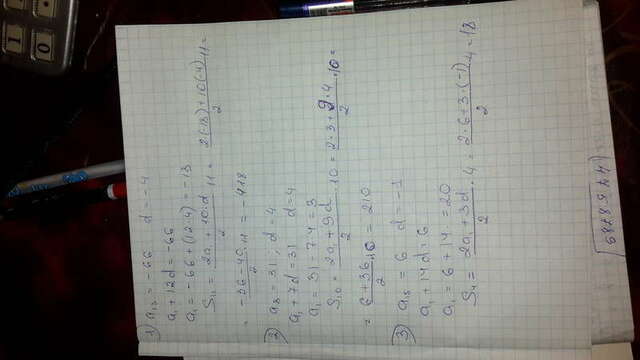 1) a₁₃ = -66 d = -4
a₁ + 12d = -66
a₁ = -66 + (12·4) = -13
S₁₁ = (2a₁ + 10·d)/2 · 11 = (2(-18) + 10(-4))/2 · 11 =
= (-36-40)/2 · 11 = -418
2) a₈ = 31, d = 4
a₁ + 7d = 31 d = 4
a₁ = 31 - 7·4 = 3
S₁₀ = (2a₁ + 9d)/2 · 10 = (2·3 + 9·4)/2 · 10 =
= (6 + 36)/2 · 10 = 210
3) a₁₅ = 6 d = -1
a₁ + 14d = 6
a₁ = 6 + 14 = 20
S₄ = (2a₁ + 3d)/2 · 4 = (2·6 + 3·(-1))/2 · 4 = 18